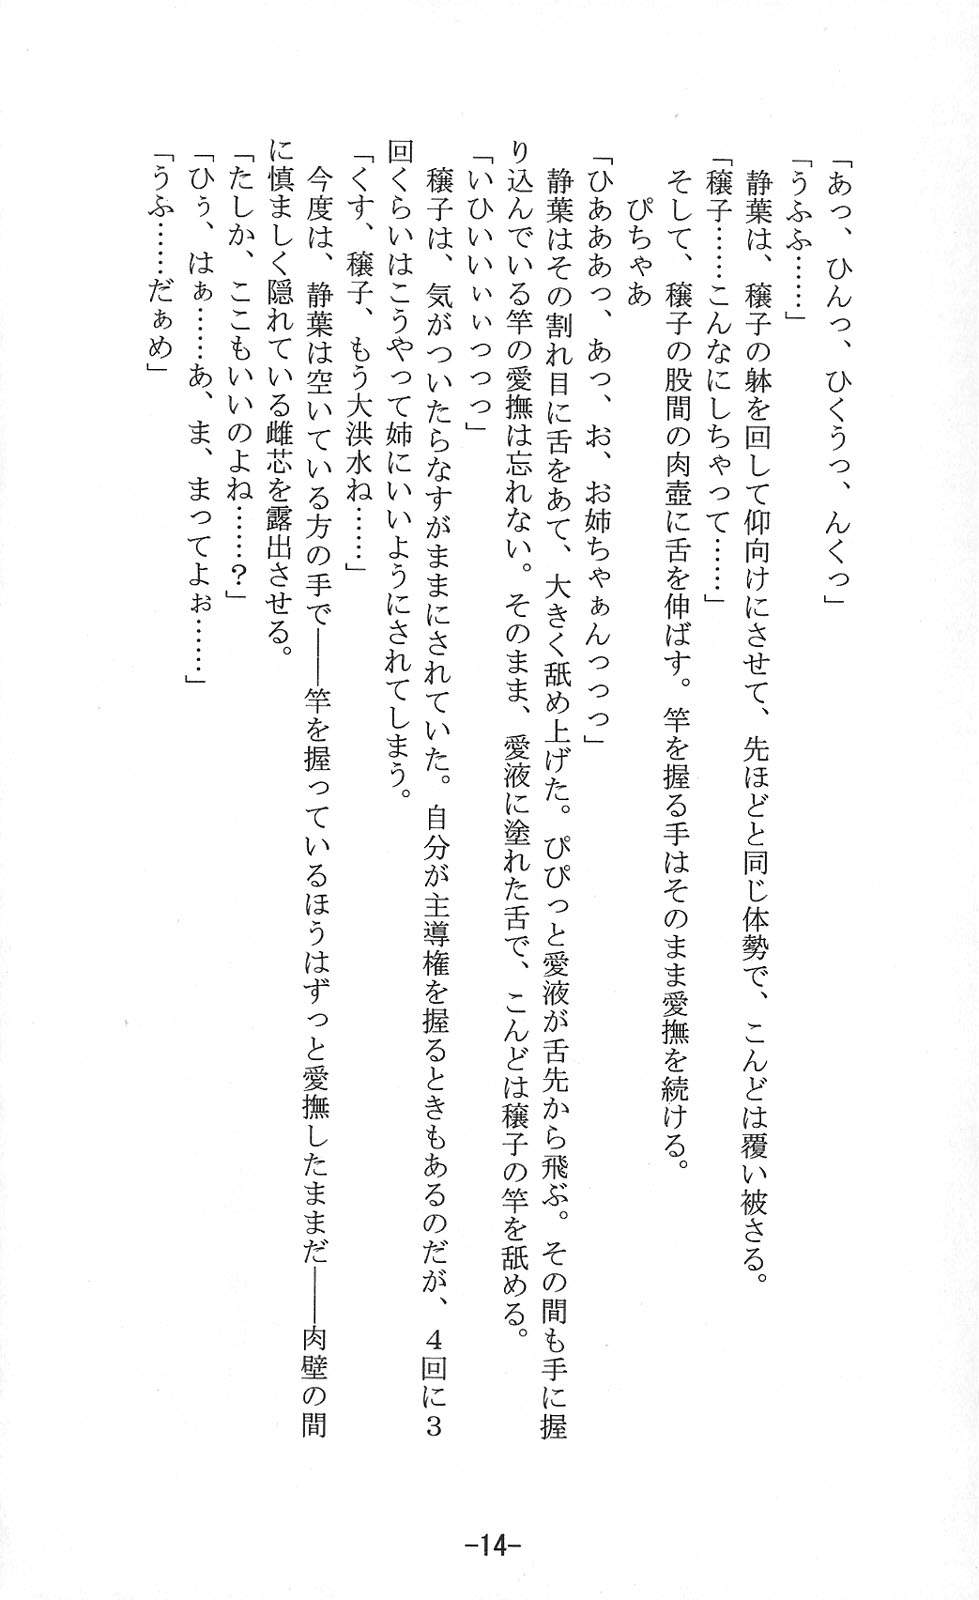 「あっ、ひんっ、ひくうっ、んくっ」
「うふふ……」
　静葉は、穣子の躰を回して仰向けにさせて、先ほどと同じ体勢で、こんどは覆い被さる。
「穣子……こんなにしちゃって……」
　そして、穣子の股間の肉壺に舌を伸ばす。竿を握る手はそのまま愛撫を続ける。
　ぴちゃあ
「ひあああっ、あっ、お、お姉ちゃぁんっっっ」
　静葉はその割れ目に舌をあて、大きく舐め上げた。ぴぴっと愛液が舌先から飛ぶ。その間も手に握
り込んでいる竿の愛撫は忘れない。そのまま、愛液に塗れた舌で、こんどは穣子の竿を舐める。
「いひいいぃぃっっっ」
　穣子は、気がついたらなすがままにされていた。自分が主導権を握るときもあるのだが、４回に３
回くらいはこうやって姉にいいようにされてしまう。
「くす、穣子、もう大洪水ね……」
　今度は、静葉は空いている方の手で――竿を握っているほうはずっと愛撫したままだ――肉壁の間
に慎ましく隠れている雌芯を露出させる。
「たしか、ここもいいのよね……？」
「ひぅ、はぁ……あ、ま、まってよぉ……」
「うふ……だぁめ」
-14-